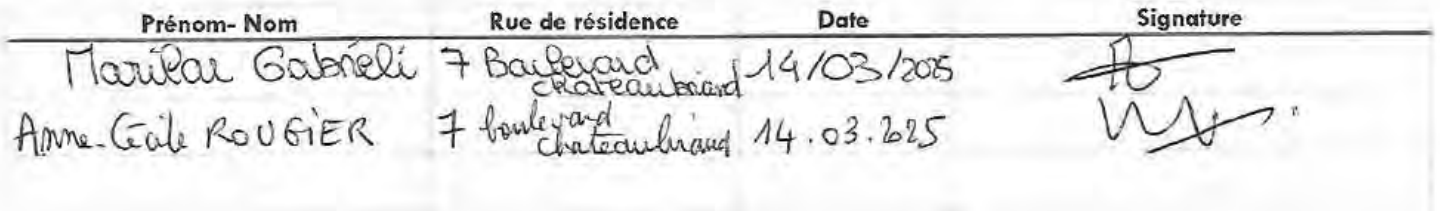 Prénom- Nom Rue de résidence Date Signature
Marilou Gabrieli 7 Boulevard chateaubriand 14/03/2025
Anne-Cécile ROUGIER 7 boulevard chateaubriand 14.03.2025